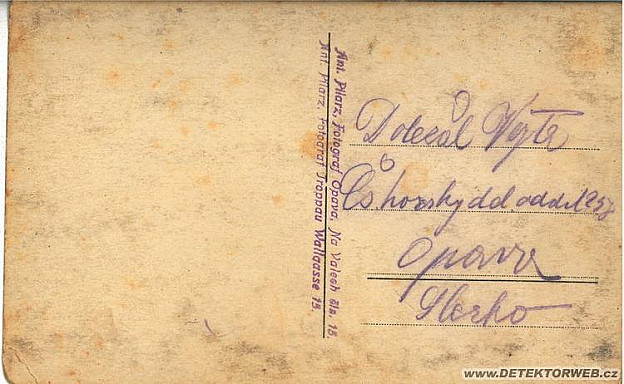 Ant. Pilarz, Fotograf Opava, Na Valech čís. 15.
Ant. Pilarz, Fotograf Troppau Wallgasse 15.
Doležal
Čs horský děl. odd.
Opava
Slezko
www.DETEKTORWEB.cz